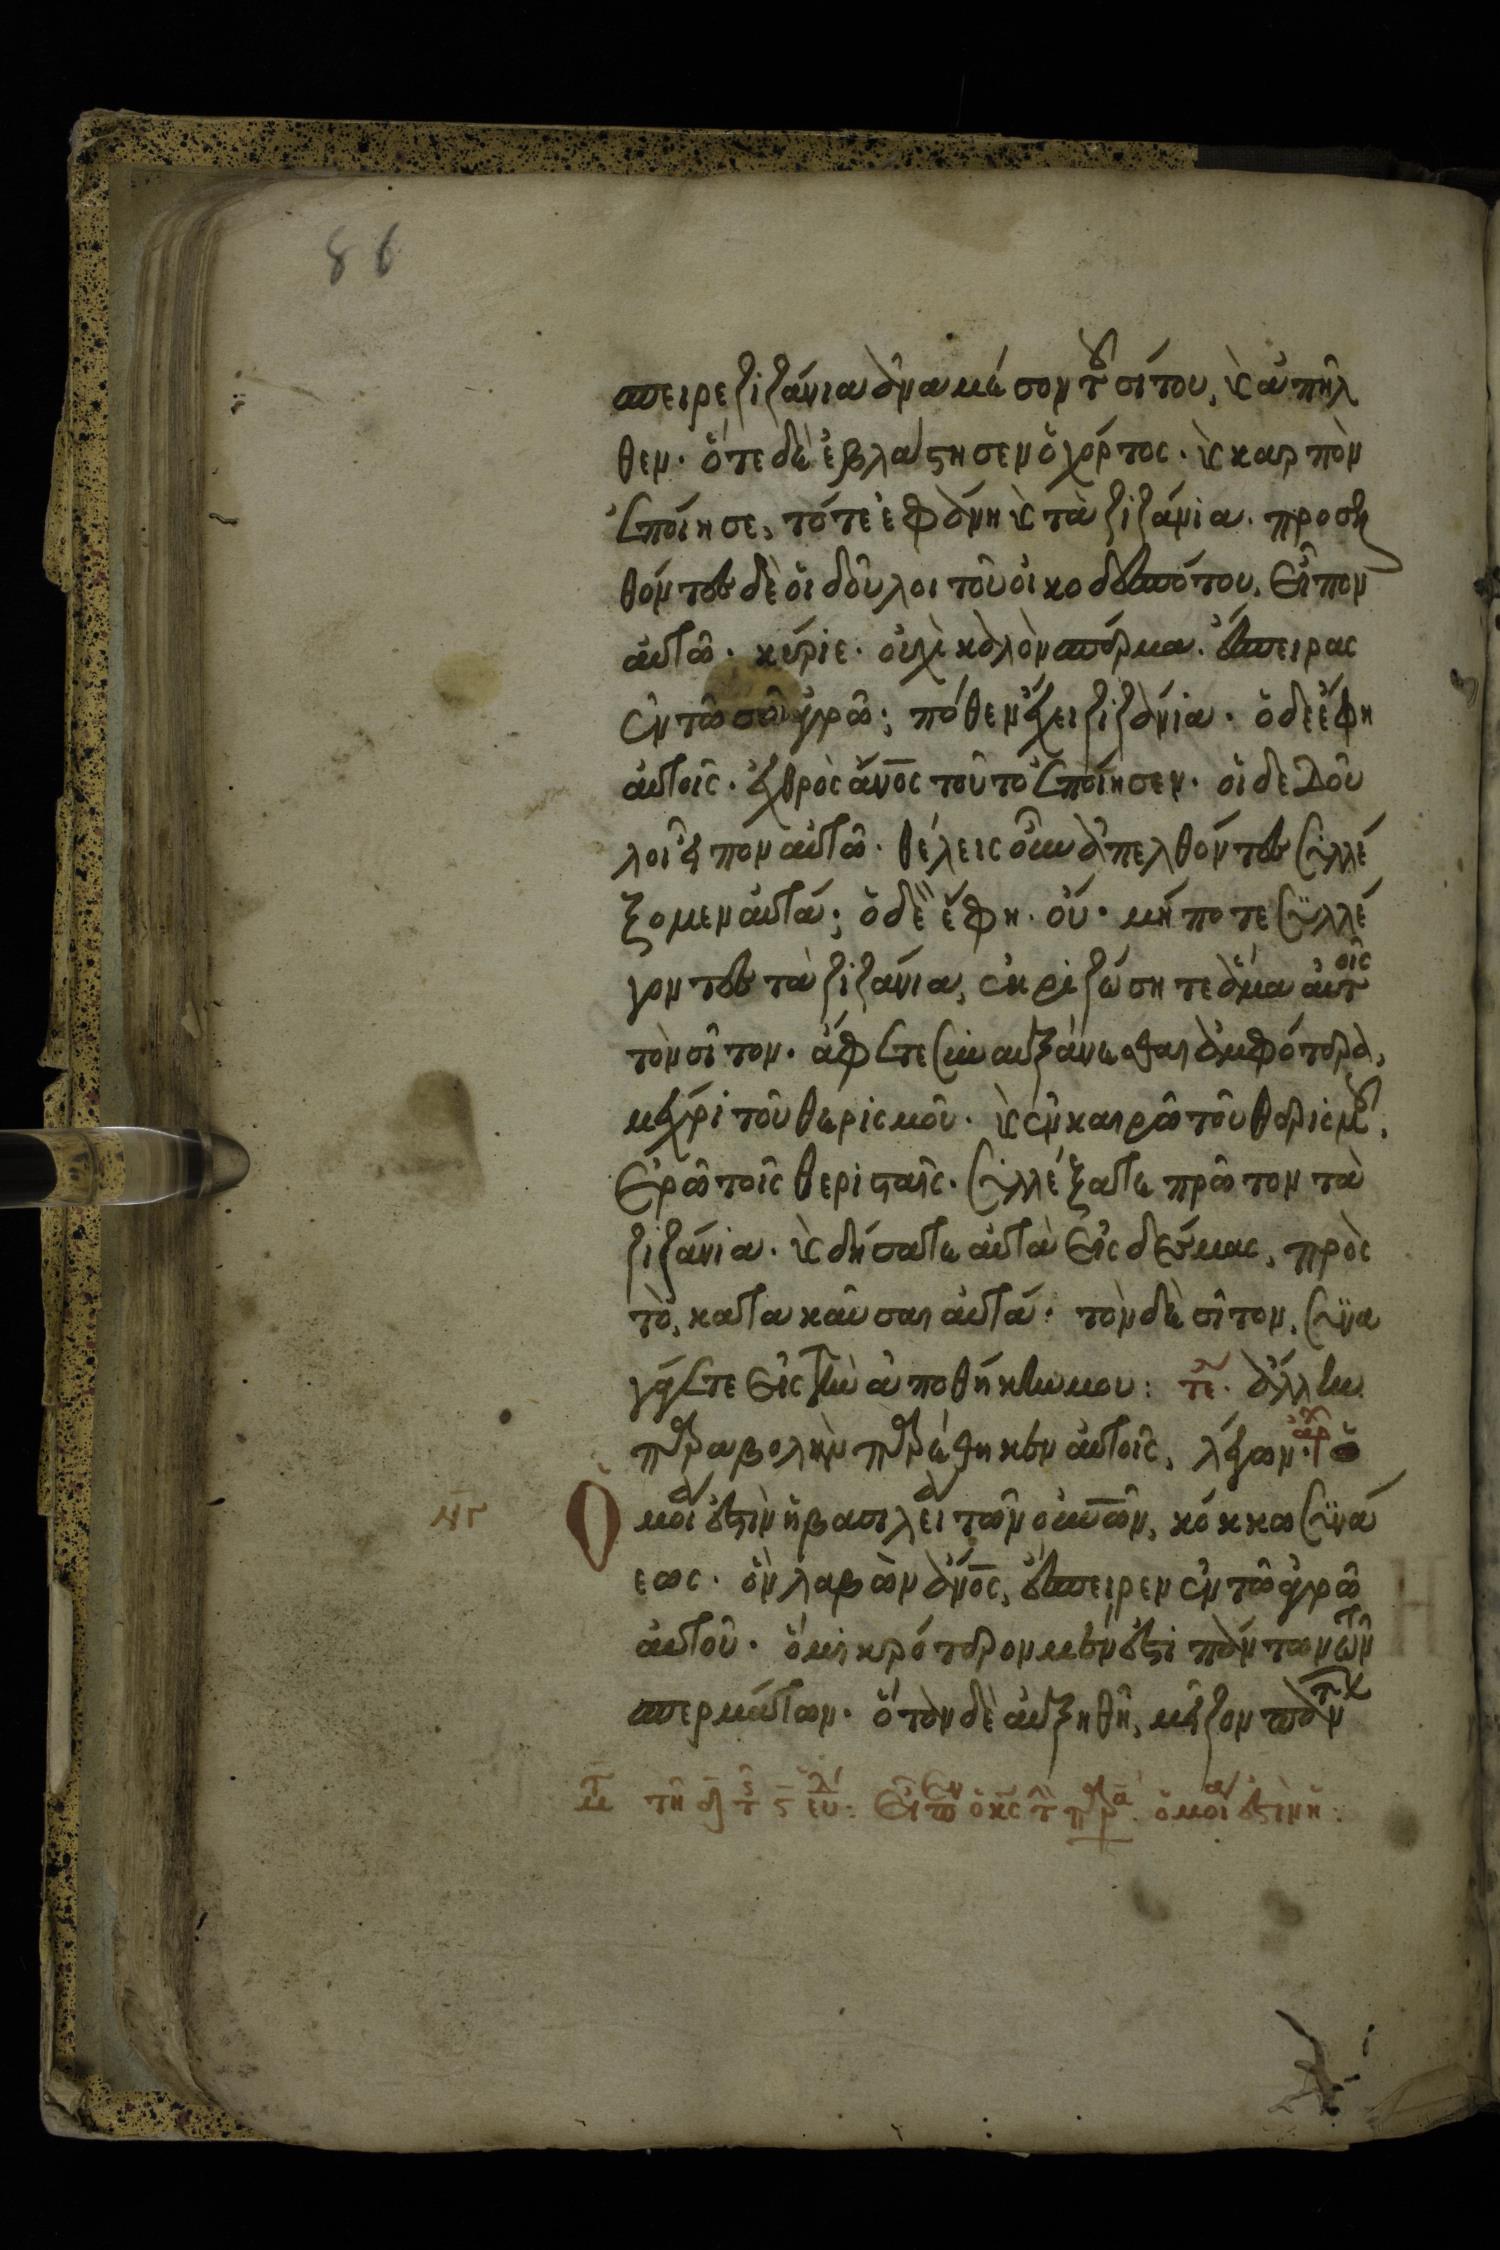 86
σπειρε ζιζάνια ἀνα μέσον τοῦ σίτου, καὶ ἀπῆλ
θεν· ὅτε δὲ ἐβλάστησεν ὁ χόρτος· καὶ καρπὸν
ἐποίησε, τότε ἐφάνη καὶ τὰ ζιζάνια. προσελ
θόντες δὲ οἱ δοῦλοι τοῦ οἰκοδεσπότου, εἶπον
αὐτῶ· κύριε· οὐχὶ καλὸν σπέρμα. ἔσπειρας
ἐν τῶ σῶ ἀγρῶ; πόθεν ἔχει ζιζάνια· ὁ δὲ ἔφη
αὐτοῖς· ἐχθρὸς ἄνος τοῦτο ἐποίησεν· οἱ δε δοῦ
λοι εἶπον αὐτῶ· θέλεις οὖν ἀπελθόντες συλλέ
ξομεν αὐτά; ὁ δὲ ἔφη· οὔ· μήποτε συλλέ
γοντες τὰ ζιζάνια, ἐκριζώσητε ἅμα αὐτοῖς
τὸν σῖτον· ἄφετε συναυξάνεσθαι ἀμφότερα,
μέχρι τοῦ θερισμοῦ· καὶ ἐν καιρῶ τοῦ θερισμοῦ,
ἐρῶ τοῖς θερισταῖς· συλλέξατε πρῶτον τὰ
ζιζάνια· καὶ δήσατε αὐτὰ εἰς δέσμας, πρὸς
τὸ, κατακαῦσαι αὐτά· τὸν δὲ σῖτον, συνα
γάγετε εἰς τὴν ἀποθήκην μου: τε· ἄλλην
παραβολὴν παρέθηκεν αὐτοῖς, λέγων· αρχ ὁ
νγ Ὁμοία ἐστὶν ἡ βασιλεία τῶν οὐνῶν, κόκκω σινά
εως· ὃν λαβὼν ἄνος, ἔσπειρεν ἐν τῶ ἀγρῶ
αὐτοῦ· ὃ μικρότερον μέν ἐστι πάντων τῶν
σπερμάτων· ὅταν δὲ αὐξηθῆ, μεῖζον πάντ
τῆ ς εὐ: εἶπεν ὁ κς τ παρα ὁμοία ἐστὶν ἡ: